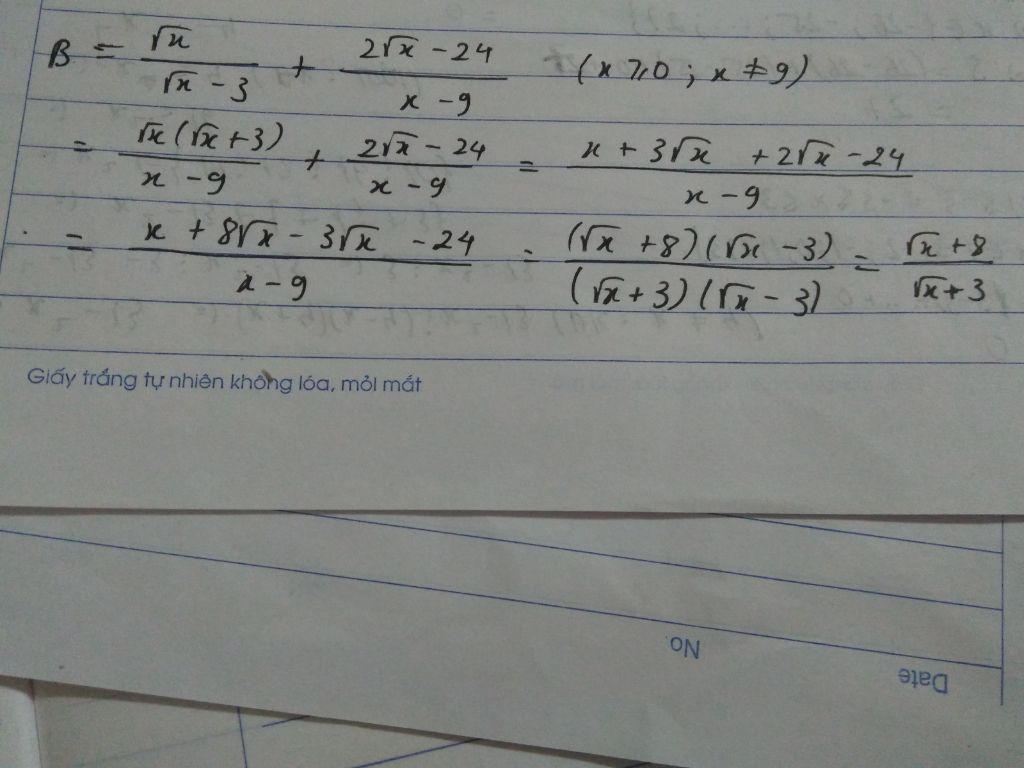 B = √x / (√x - 3) + (2√x - 24) / (x - 9) (x ⩾ 0 ; x ≠ 9)
= √x(√x + 3) / (x - 9) + (2√x - 24) / (x - 9) = (x + 3√x + 2√x - 24) / (x - 9)
= (x + 8√x - 3√x - 24) / (x - 9) = (√x + 8)(√x - 3) / (√x + 3)(√x - 3) = (√x + 8) / (√x + 3)
Giấy trắng tự nhiên không lóa, mỏi mắt
No
Date